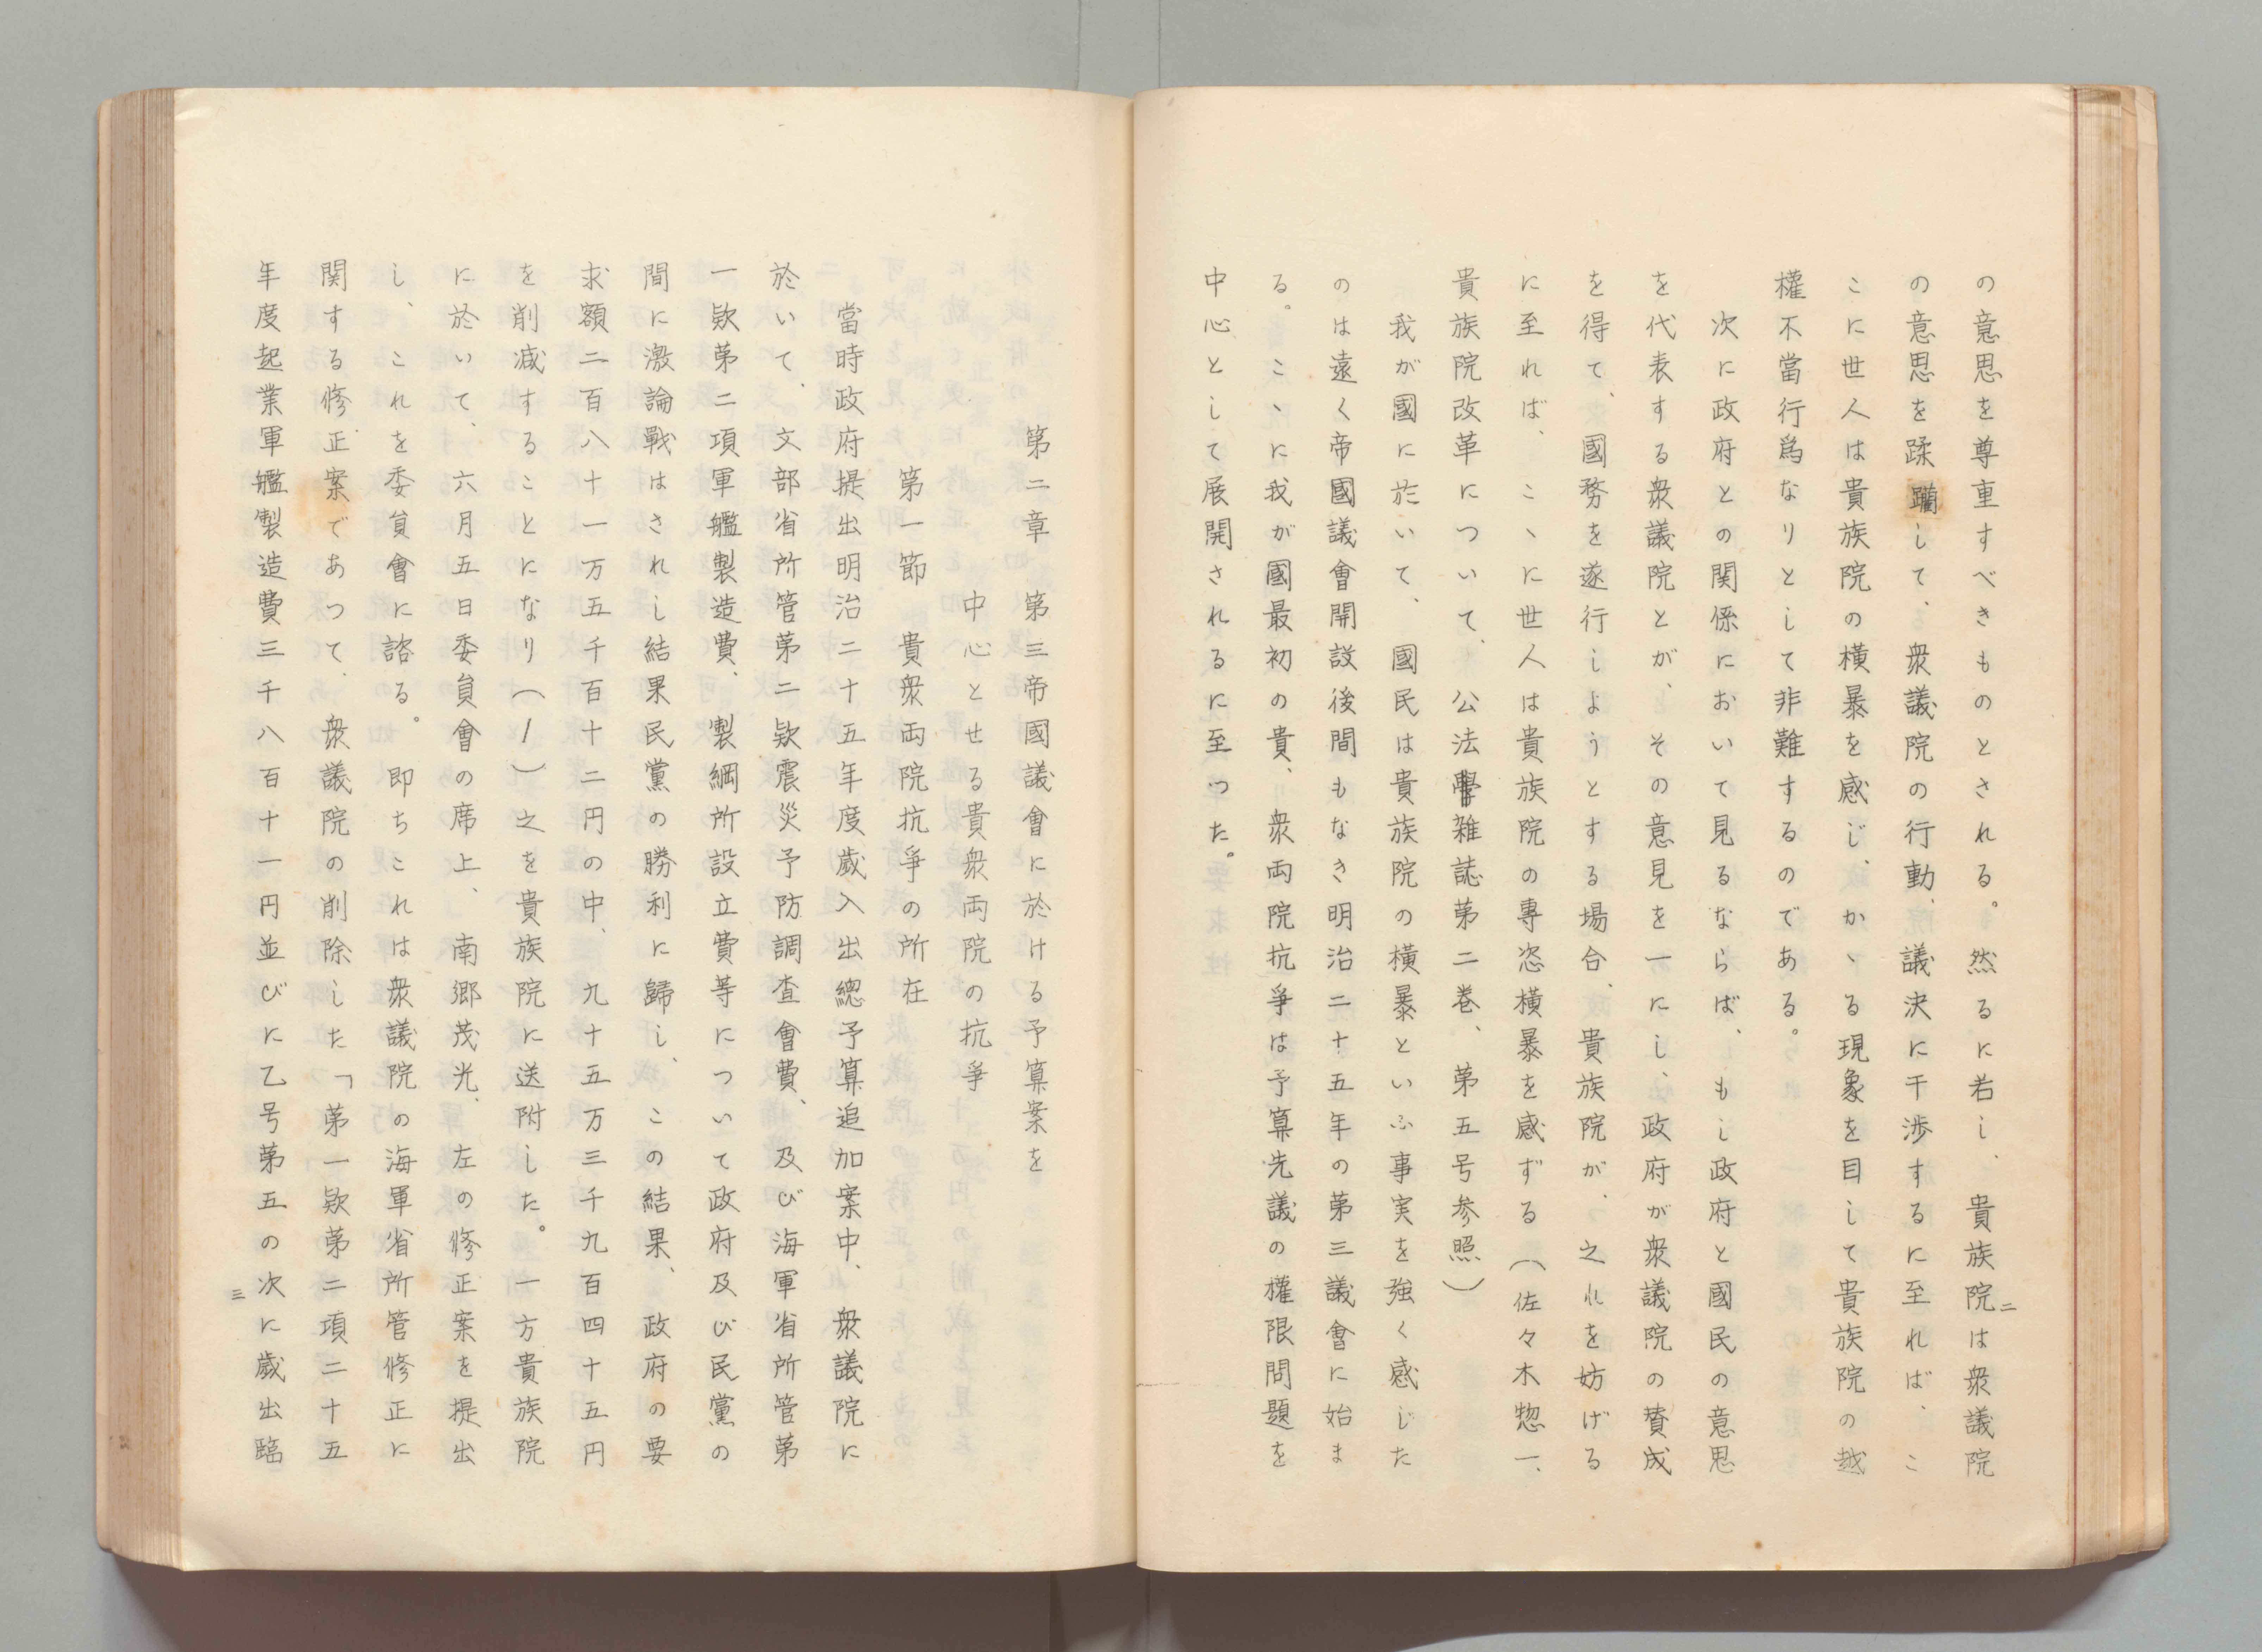 の意思を尊重すべきものとされる。然るに若し、貴族院は衆議院
の意思を蹂躙して、衆議院の行動、議決に干渉するに至れば、こ
こに世人は貴族院の横暴を感じ、かゝる現象を目して貴族院の越
權不當行爲なりとして非難するのである。
次に政府との関係において見るならば、もし政府と國民の意思
を代表する衆議院とが、その意見を一にし、政府が衆議院の賛成
を得て、國務を遂行しようとする場合、貴族院が、之れを妨げる
に至れば、こゝに世人は貴族院の專恣横暴を感ずる(佐々木惣一、
貴族院改革について、公法學雑誌第二巻、第五号参照)
我が國に於いて、國民は貴族院の横暴といふ事実を強く感じた
のは遠く帝國議會開設後間もなき明治二十五年の第三議會に始ま
る。こゝに我が國最初の貴、衆両院抗爭は予算先議の權限問題を
中心として展開されるに至つた。
二
第二章 第三帝國議會に於ける予算案を
中心とせる貴衆両院の抗爭
第一節 貴衆両院抗爭の所在
當時政府提出明治二十五年度歳入出總予算追加案中、衆議院に
於いて、文部省所管第二欵震災予防調査會費、及び海軍省所管第
一欵第二項軍艦製造費、製綱所設立費等について政府及び民黨の
間に激論戰はされし結果民黨の勝利に歸し、この結果、政府の要
求額二百八十一万五千百十二円の中、九十五万三千九百四十五円
を削減することになり(1)之を貴族院に送附した。一方貴族院
に於いて、六月五日委員會の席上、南郷茂光、左の修正案を提出
し、これを委員會に諮る。即ちこれは衆議院の海軍省所管修正に
関する修正案であつて、衆議院の削除した「第一欵第二項二十五
年度起業軍艦製造費三千八百十一円並びに乙号第五の次に歳出臨
三